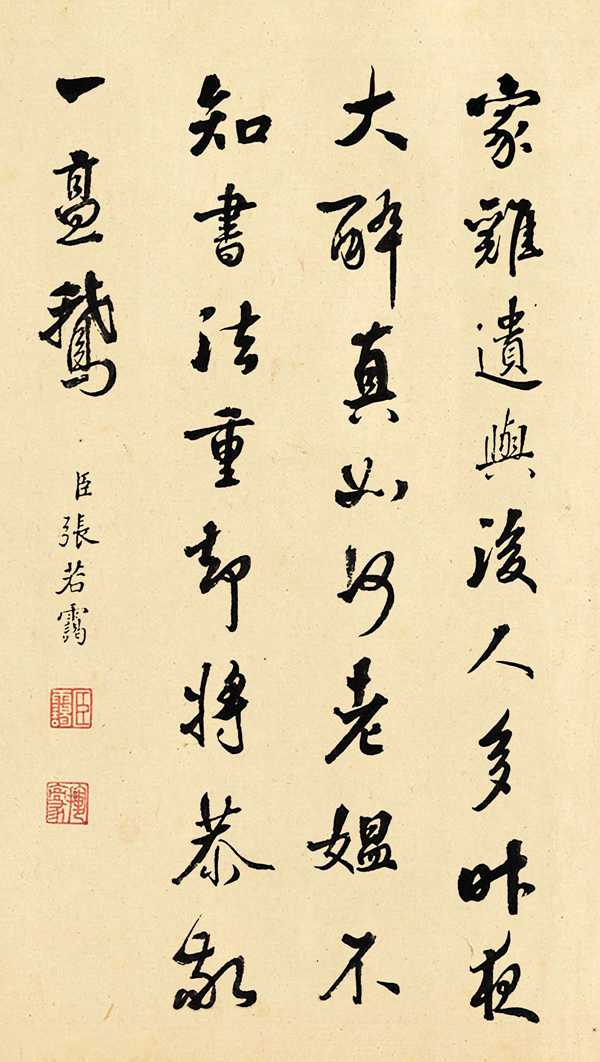 家雞遺與後人多昨夜
大醉真如何老媼不
知書法重却將恭敬
一烹鵝
臣張若靄
臣靄